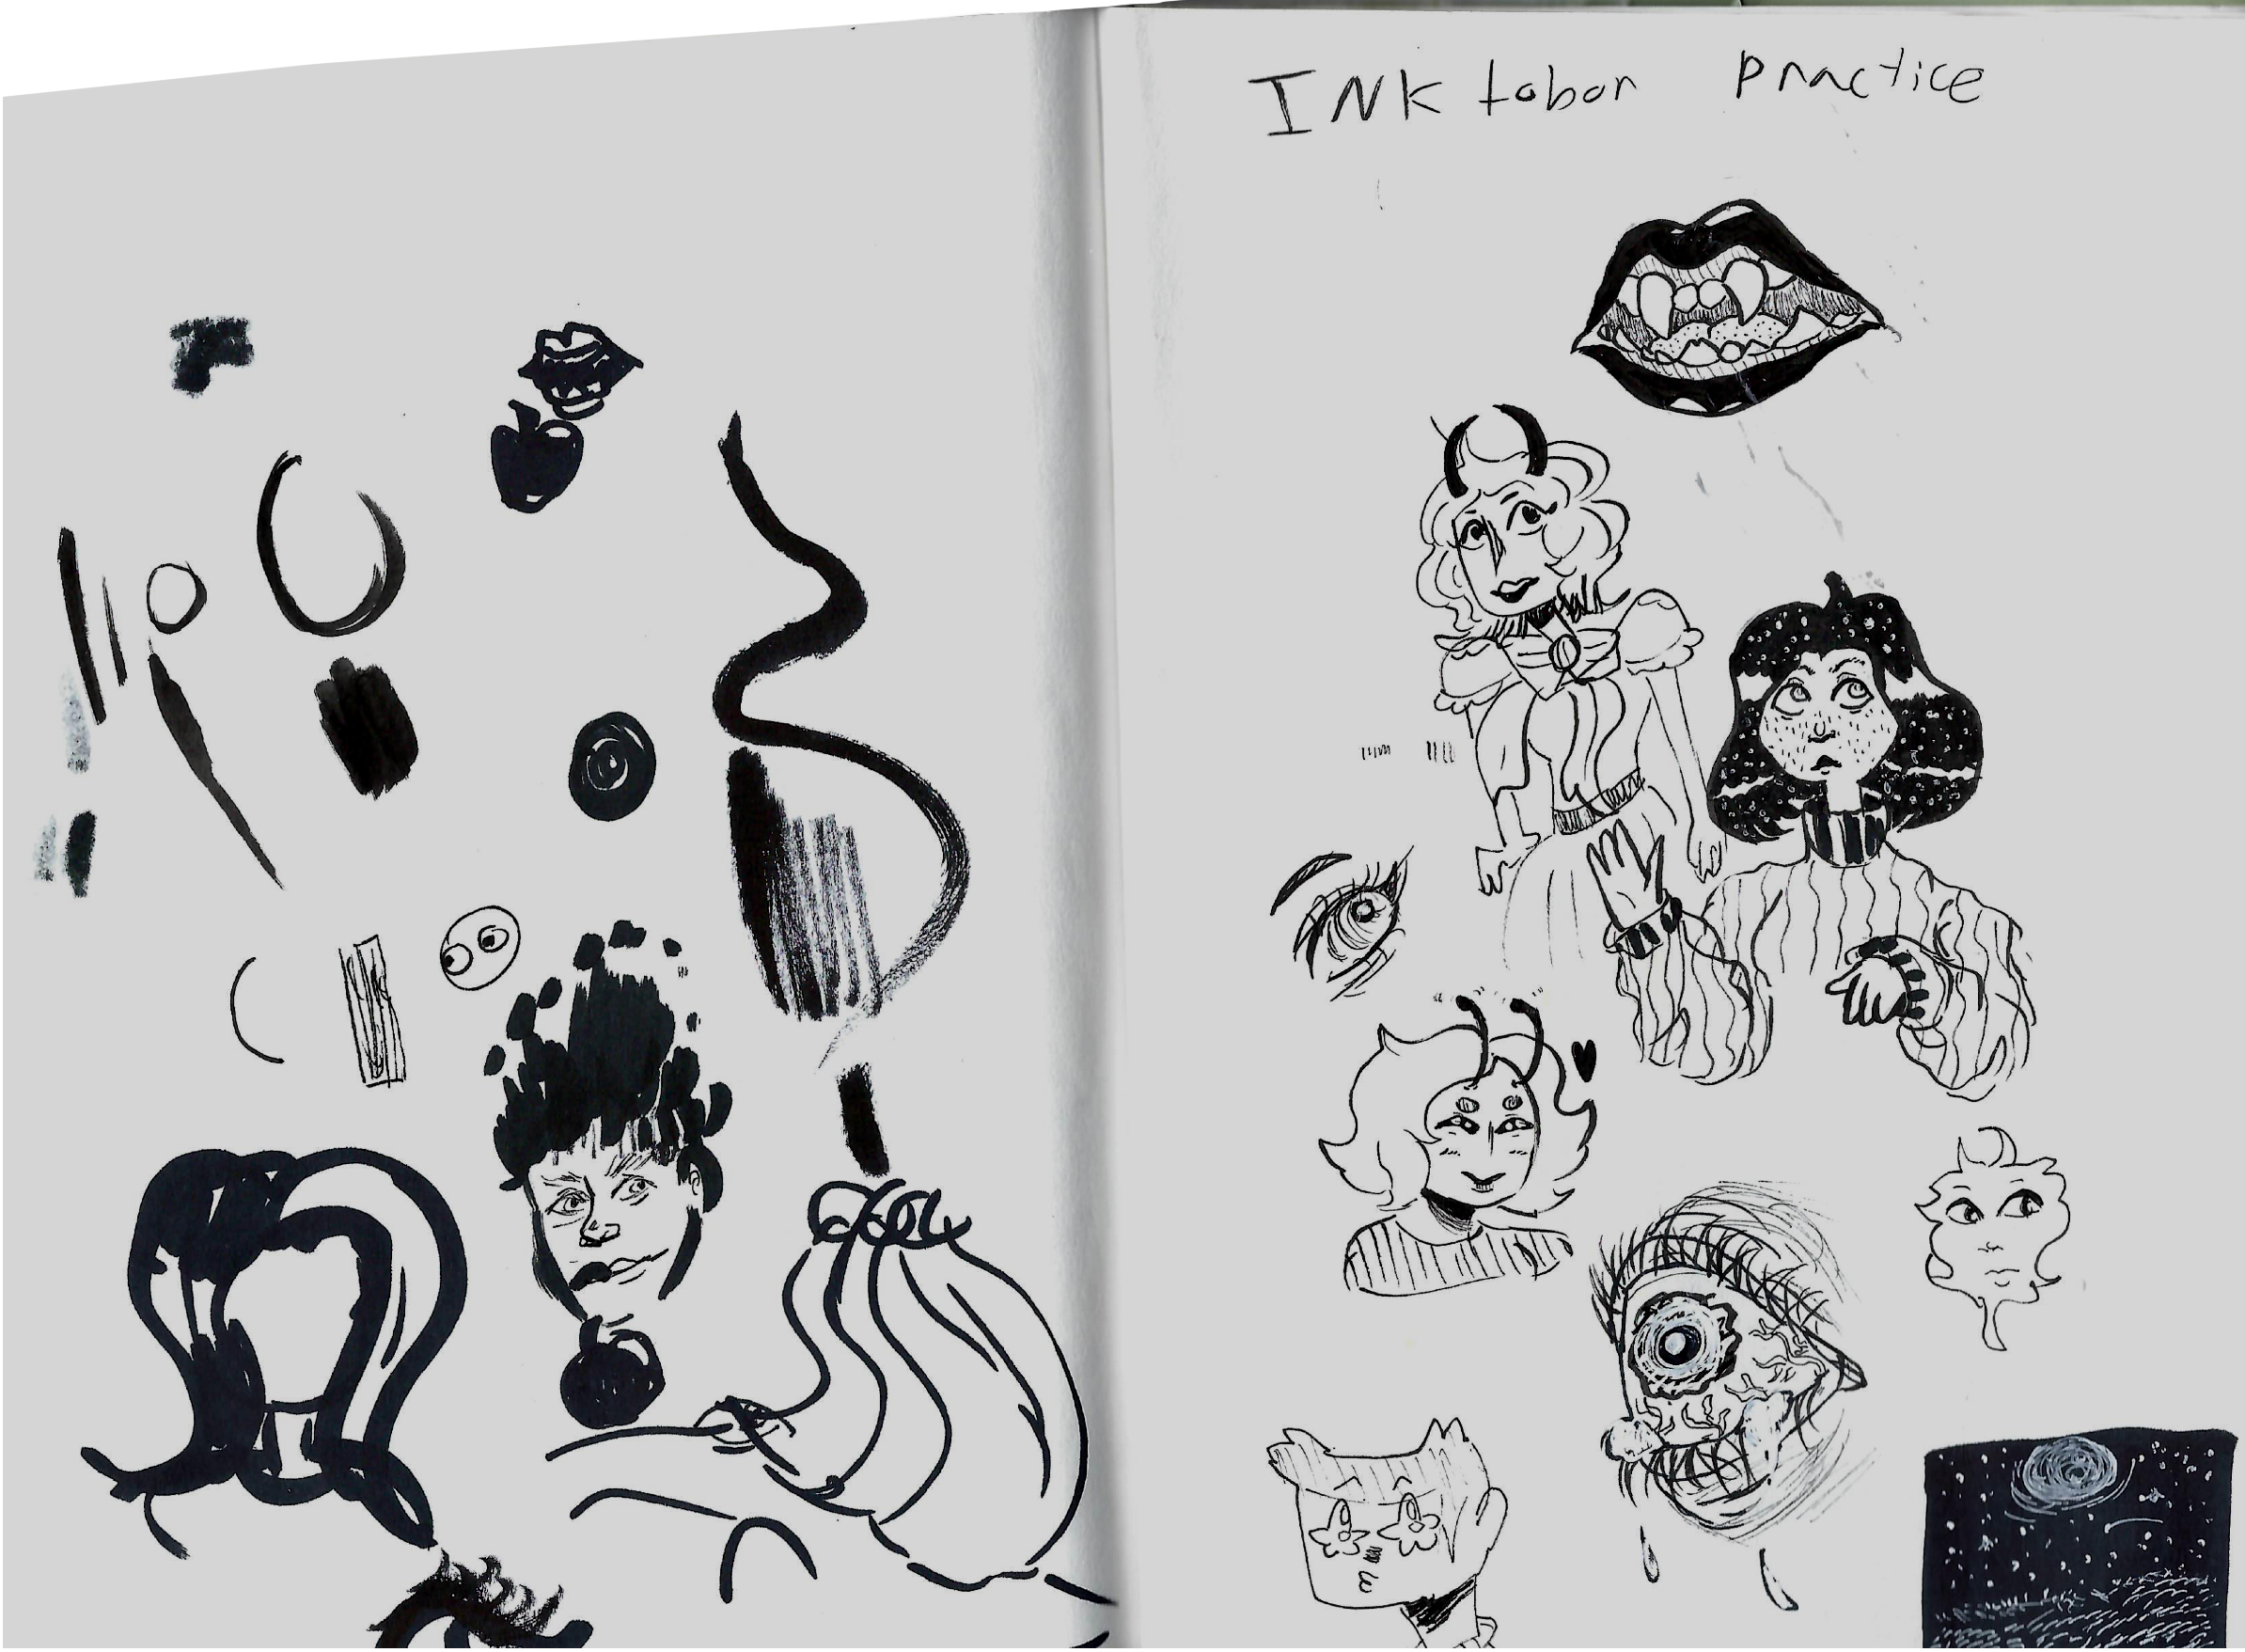 INK tobor practice